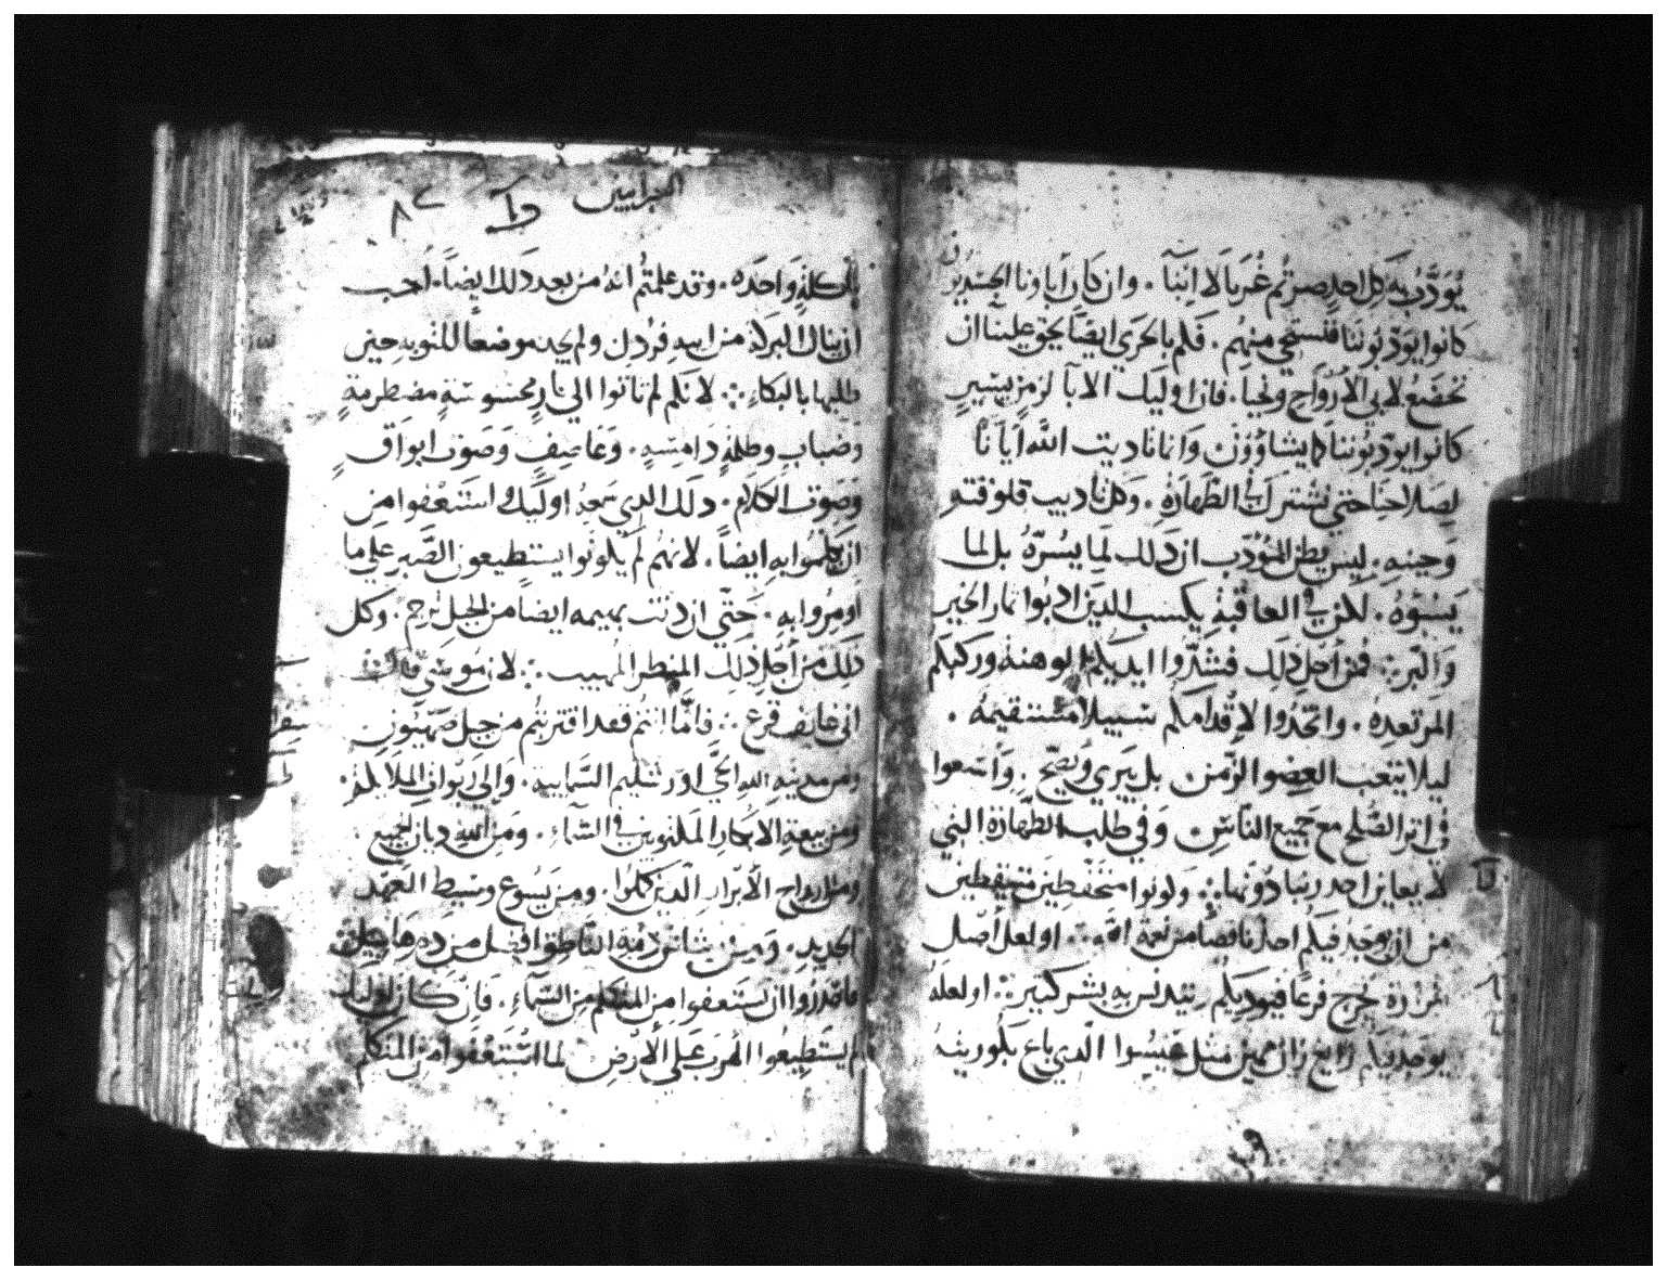 يُودَّبُ به كل احدٍ صرتُم غُرَبا لا ابنآ . وان كان أباونا الجسديون
كانوا يودّبُوننا فنستحي منهم . فكم بالحَرَي ايضًا يحق علينا ان
نخضَع لابي الأرواح ونحيا . فان اوليك الابآ لزمنٍ يسيرٍ
كانوا يودّبُوننا كما يشاؤون وانما تاديب الله ايانا
لصلاحنا حتي نشترك في الطهارة . وكل تاديب فلوقته
وحينه . ليس يظن المُؤدّب ان ذلك لما يسُرّهُ بل لما
يَسُوّهُ . لكن في العاقبة يكسب الدين ادبُوا ثمار الخير
وَالبّر فمن أجل ذلك فشدّوا ايديكم الوهنة وركبكم
المرتعده . واتخدُوا لاقدامكم سبيلا مستقيمة .
ليلا يتعب العضو الزمن بل يبَري ويصّح . وأسعوا
في اتر الصّلح مع جميع الناس وفي طلب الطهارة التي
لا يعاين احد ربنا دُونها وكونوا متحفظين متيقظين
من ان يوجد فيكم احد ناقصًا من نعمة الله . او لعل أصل
مرارة يخرج فرعًا فيوديكم ويتدنس به بشر كتير او لعله
يوجد فيكم زانٍ مهين مثل عيسُوا الّدي باع بكوريته
العبرانيين
باكلة واحده . وقد علمتُم انهُ من بعد دلك ايضاً . احب
ان ينال البركة من ابيه فرُدل ولم يجد موضعاً للتوبه حين
طلبها بالبكاءِ لانكم لم تاتوا الي نارٍ محسوسَةٍ مضطرمةٍ
وضبابٍ وظلمةٍ دَامسَةٍ . وَعَاصِفٍ وَصَوت ابواقٍ
وَصَوت الكلام . دلك الدي سَمعهُ اوليك استَعْفوا من
ان يكلمُوا به ايضاً . لانهُم لم يكونوا يستطيعون الصَّبر علي ما
اومرُوا به . حَتّي ان دنت بهيمه ايضاً من الجبل تُرجم . وكل
دلك من أجل ذلك المنظر المُهيب لان موسَي قال
اني خايف فزع فامَّا انتم فقد اقتربتم من جبل صَهيون
ومن مدينه الله الحيّ اورشليم السَّماييه . وَإلي ربوات الملايكة .
ومن بيعة الابكار المكتوبين في السّماء . ومن الله ديان الجميع .
ومن ارواح الأبرار الّدين كملوا . ومن يسُوع وسَيط العَهد
الجديد .
فاحدرُوا ان تستَعفوا من المتكلم من السّماءِ . فان كان اوليك
لم يستَطِيعُوا الهَرب علي الأرض لما اسْتَعْفوا من المتكلم